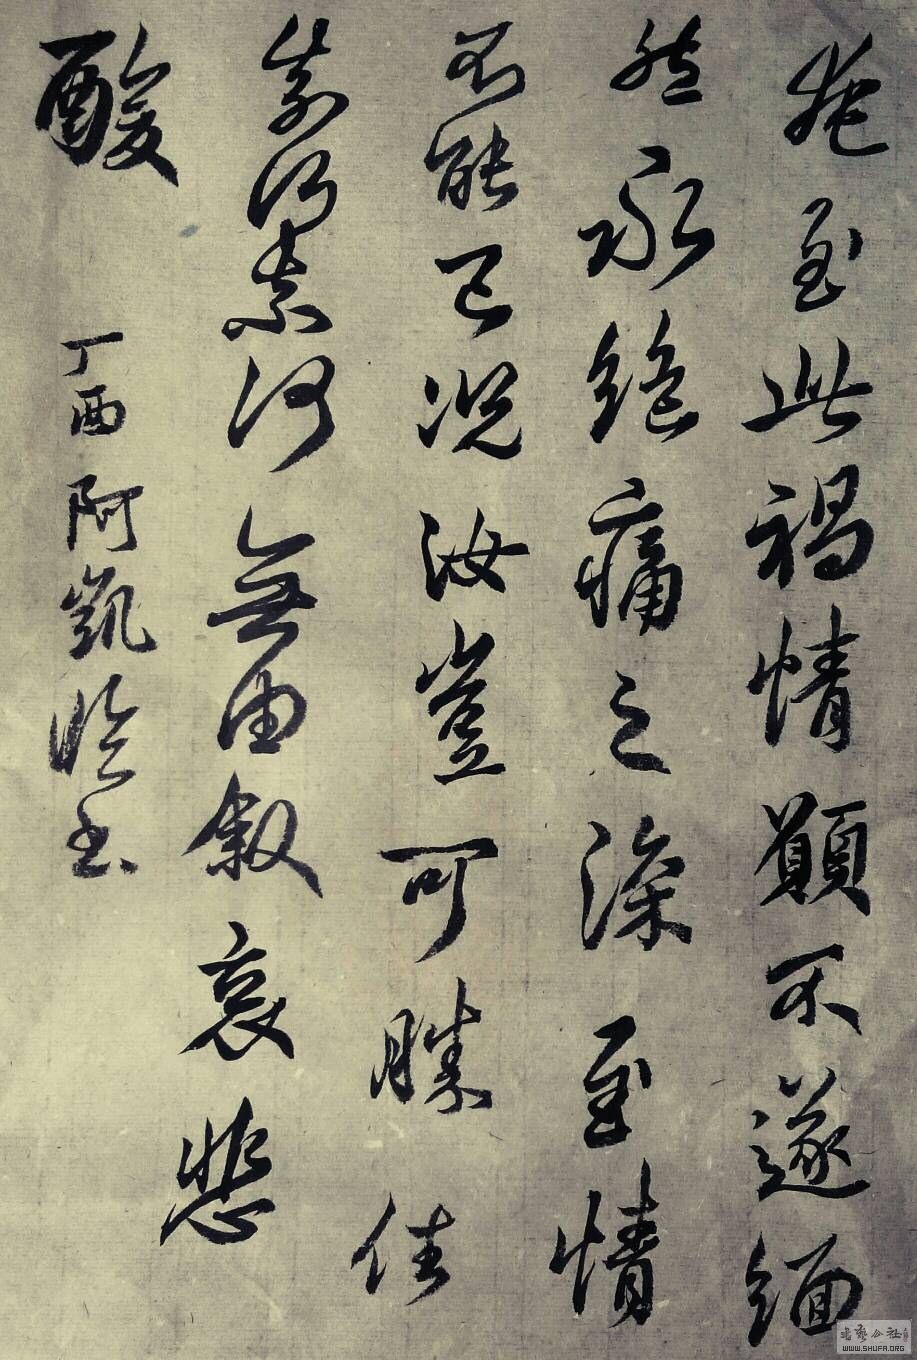 奄至此禍情願不遂緬
然永絕痛之深至情
不能已況汝豈可勝任
奈何奈何無由叙哀悲
酸
丁酉阿凱临书
书艺公社
WWW.SHUFA.ORG